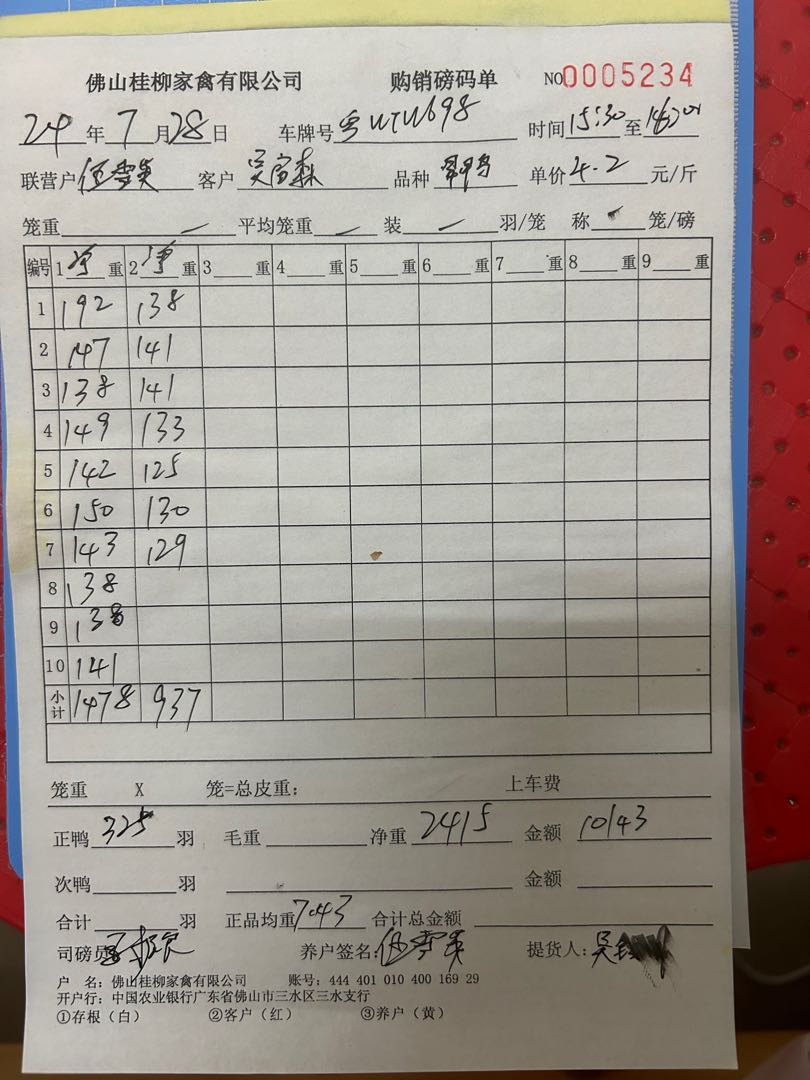 佛山桂柳家禽有限公司 购销磅码单 NO0005234
24年7月28日 车牌号 时间15:30至
联营户伍雪英 客户 品种 单价4.2元/斤
笼重 一 平均笼重 一 装 一 羽/笼 称 笼/磅
编号 1净重 2净重 3 重 4 重 5 重 6 重 7 重 8 重 9 重
1 192 138
2 147 141
3 138 141
4 149 133
5 142 125
6 150 130
7 143 129
8 138
9 138
10 141
小计 1478 937
笼重 X 笼=总皮重： 上车费
正鸭325羽 毛重 净重2415 金额10143
次鸭 羽 金额
合计 羽 正品均重7.43 合计总金额
司磅员 养户签名：伍雪英 提货人：吴
户 名：佛山桂柳家禽有限公司 账号：444 401 010 400 169 29
开户行：中国农业银行广东省佛山市三水区三水支行
①存根（白） ②客户（红） ③养户（黄）